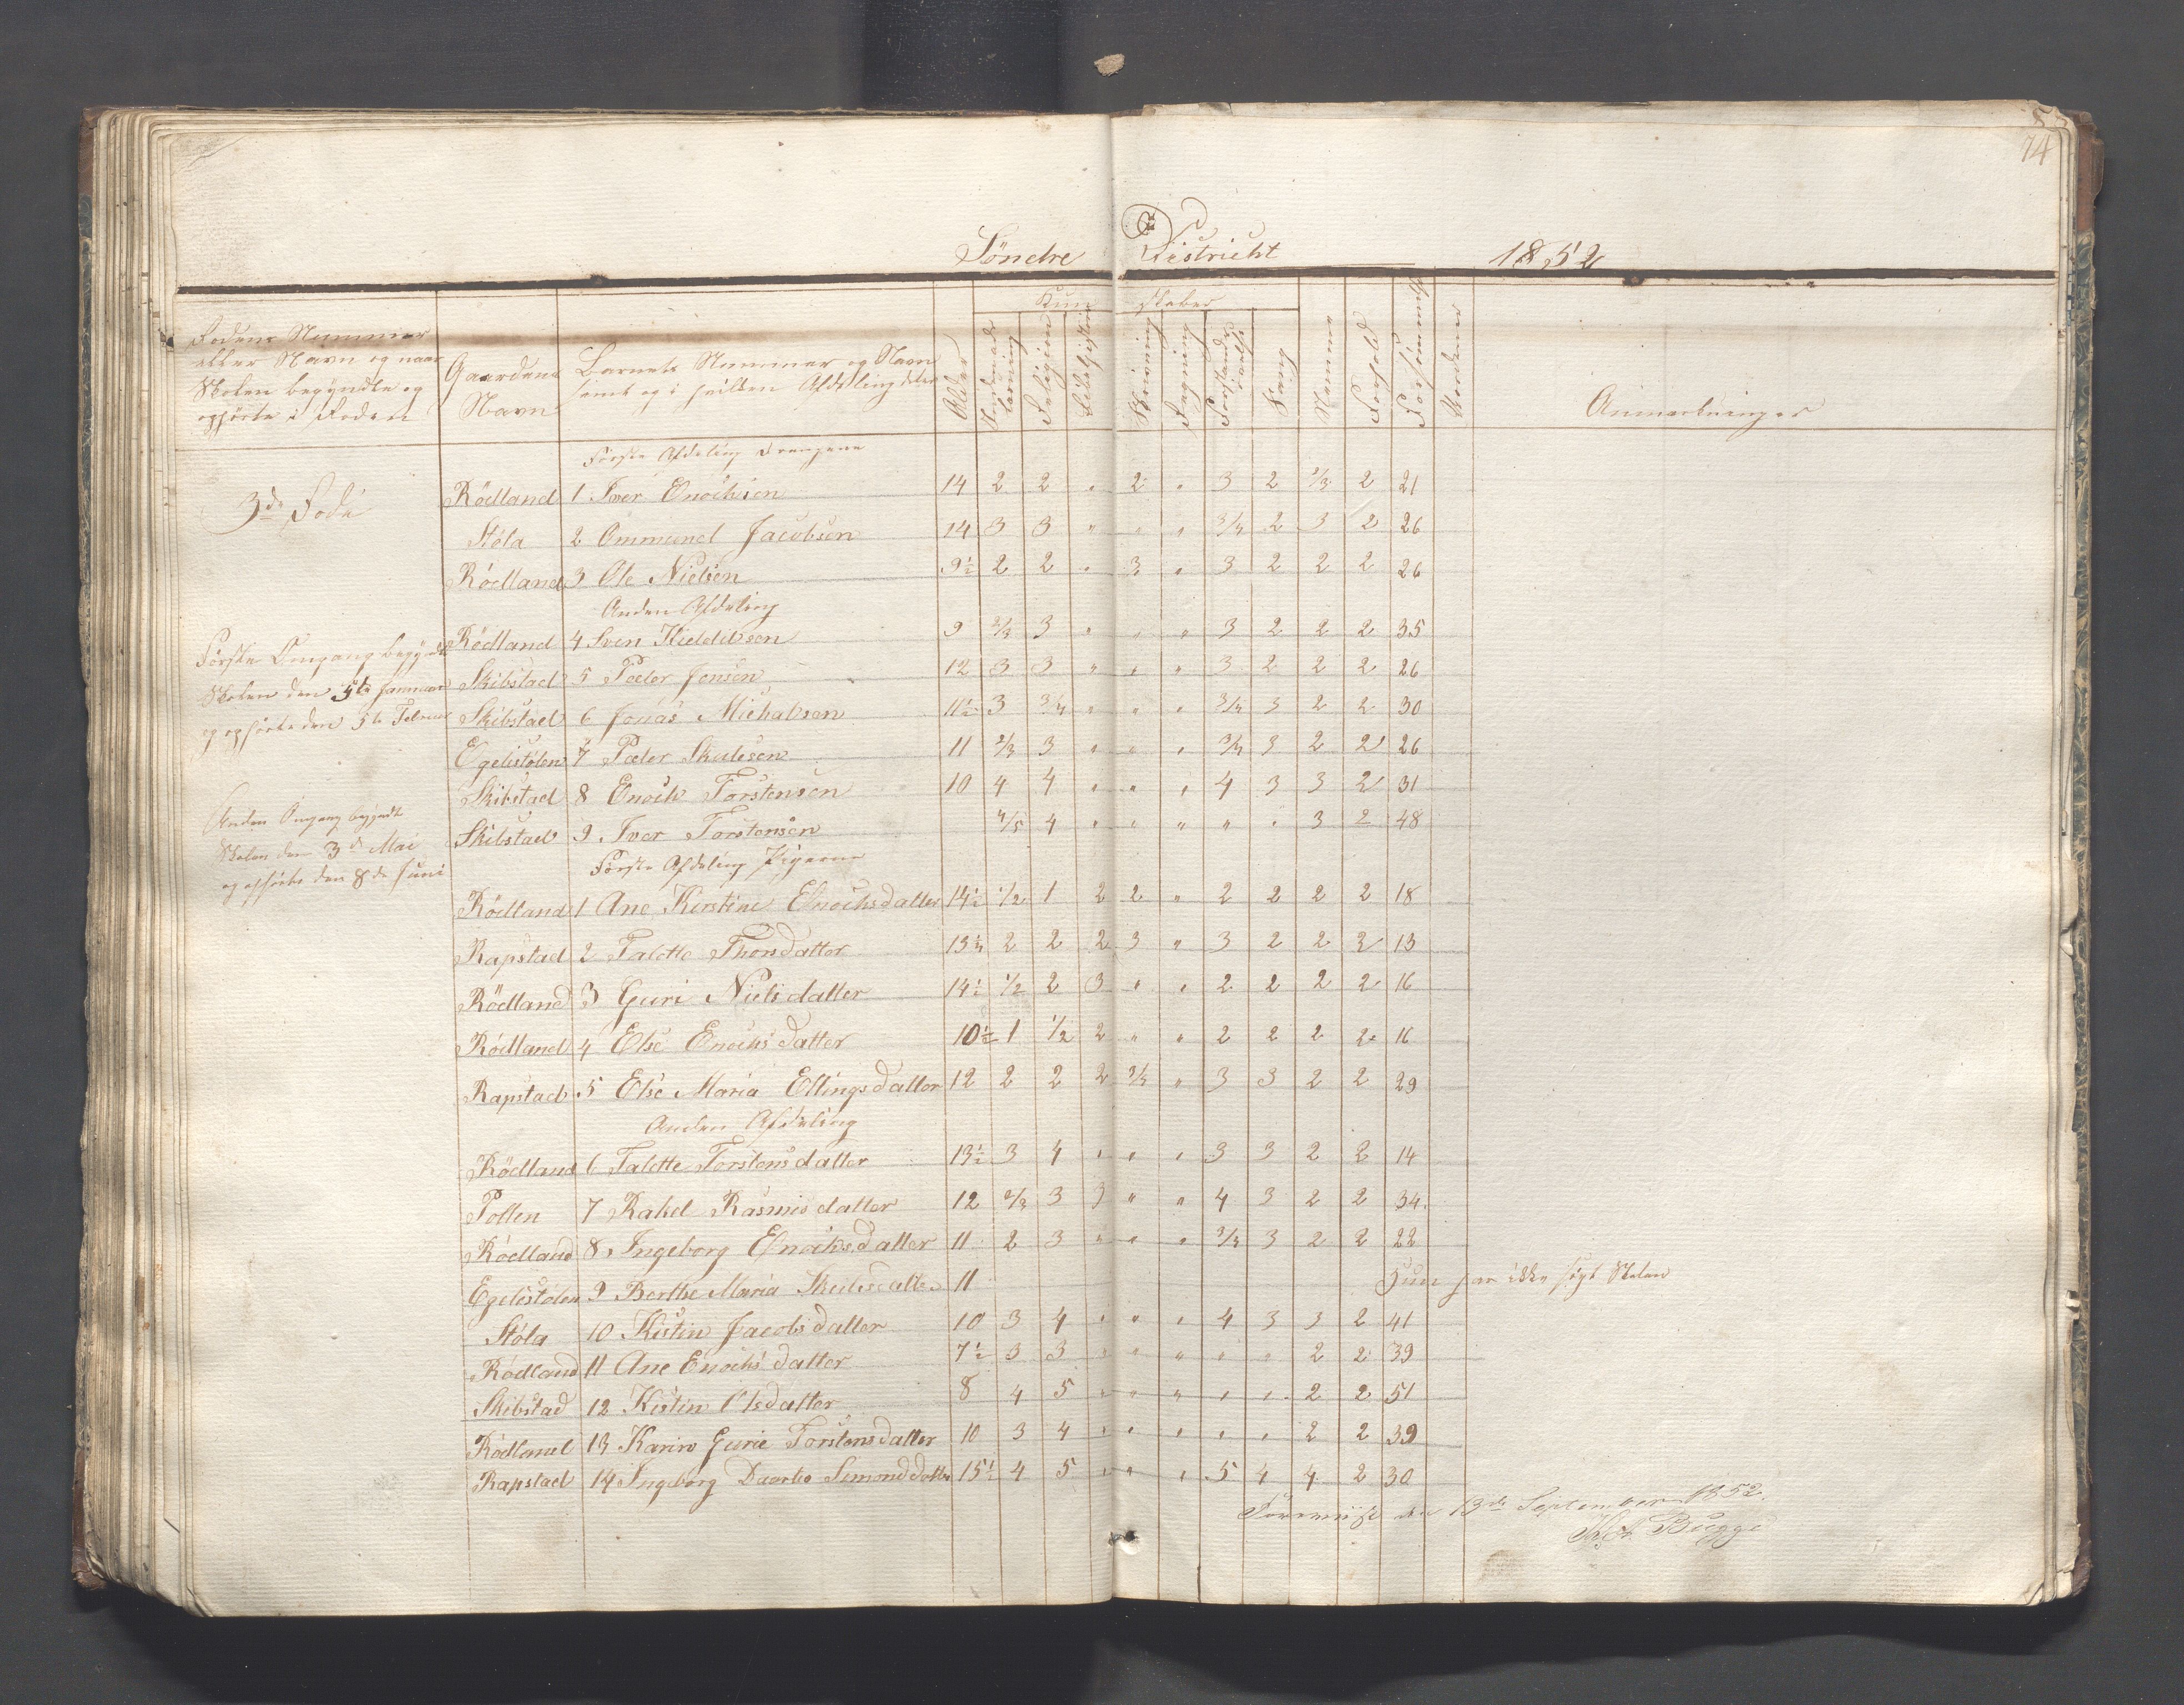 74
Söndre District 1852
Rodens Nummer
eller Navn og naar
Skolen begyndte og
ophörte i Roden
Gaardens
Navn
Barnets Nummer og Navn
samt og i hvilken Afdeling det er
Alder
Kundskaber
Indenads
læsning
Religion
Bibelhistorie
Skrivning
Regning
Forstands
övelse
Sang
Nemme
Forhold
Forsömmelse
Anmærkninger
3de Rode
Förste Afdeling Drengene
Rödland 1 Iver Enochsen 14 2 2 " 2 " 3 2 2/3 2 21
Stöla 2 Ommund Jacobsen 14 3 3 " " " 3/4 2 3 2 26
Rödland 3 Ole Nielsen 9½ 2 2 " 3 " 3 2 2 2 26
Anden Afdeling
Förste Omgang begyndte
Skolen den 5te Januar
og ophörte den 5te Februar
Rödland 4 Sven Kieldsen 9 2/3 3 " " " 3 2 2 2 35
Skibstad 5 Peder Jensen 12 3 3 " " " 3 2 2 2 26
Skibstad 6 Jonas Michalsen 11½ 3 3/4 " " " 3/4 3 2 2 30
Egelistölen 7 Peder Skulesen 11 2/3 3 " " " 3/4 3 2 2 26
Skibstad 8 Enoch Torstensen 10 4 4 " " " 4 3 3 2 31
Anden Omgang begyndte
Skolen den 3de Mai
og ophörte den 8de Juni
Skibstad 9 Iver Torstensen 4/5 4 " " " " " 3 2 48
Förste Afdeling Pigerne
Rödland 1 Ane Kirstine Enochsdatter 14½ 1/2 1 2 2 " 2 2 2 2 18
Rapstad 2 Talette Thorsdatter 13¼ 2 2 2 3 " 3 2 2 2 13
Rödland 3 Guri Nielsdatter 14½ 1/2 2 3 " " 2 2 2 2 16
Rödland 4 Else Enochsdatter 10½ 1 1/2 2 " " 2 2 2 2 16
Rapstad 5 Else Maria Ellingsdatter 12 2 2 2 2/3 " 3 3 2 2 29
Anden Afdeling
Rödland 6 Talette Torstensdatter 13½ 3 4 " " " 3 3 2 2 14
Pollen 7 Rakel Rasmisdatter 12 2/3 3 3 " " 4 3 2 2 34
Rödland 8 Ingeborg Enochsdatter 11 2 3 " " " 3/4 3 2 2 22
Egelistölen 9 Berthe Maria Skulesdatter 11 Hun har ikke sögt Skolen
Stöla 10 Kistin Jacobsdatter 10 3 4 " " " 4 3 3 2 41
Rödland 11 Ane Enochsdatter 7½ 3 3 " " " " " 2 2 39
Skibstad 12 Kistin Olsdatter 8 4 5 " " " " " 2 2 51
Rödland 13 Karin Gurie Torstensdatter 10 3 4 " " " " " 2 2 39
Rapstad 14 Ingeborg Daartea Simonsdatter 15½ 4 5 " " " 5 4 4 2 30
den 13de September 1852.
Bugge